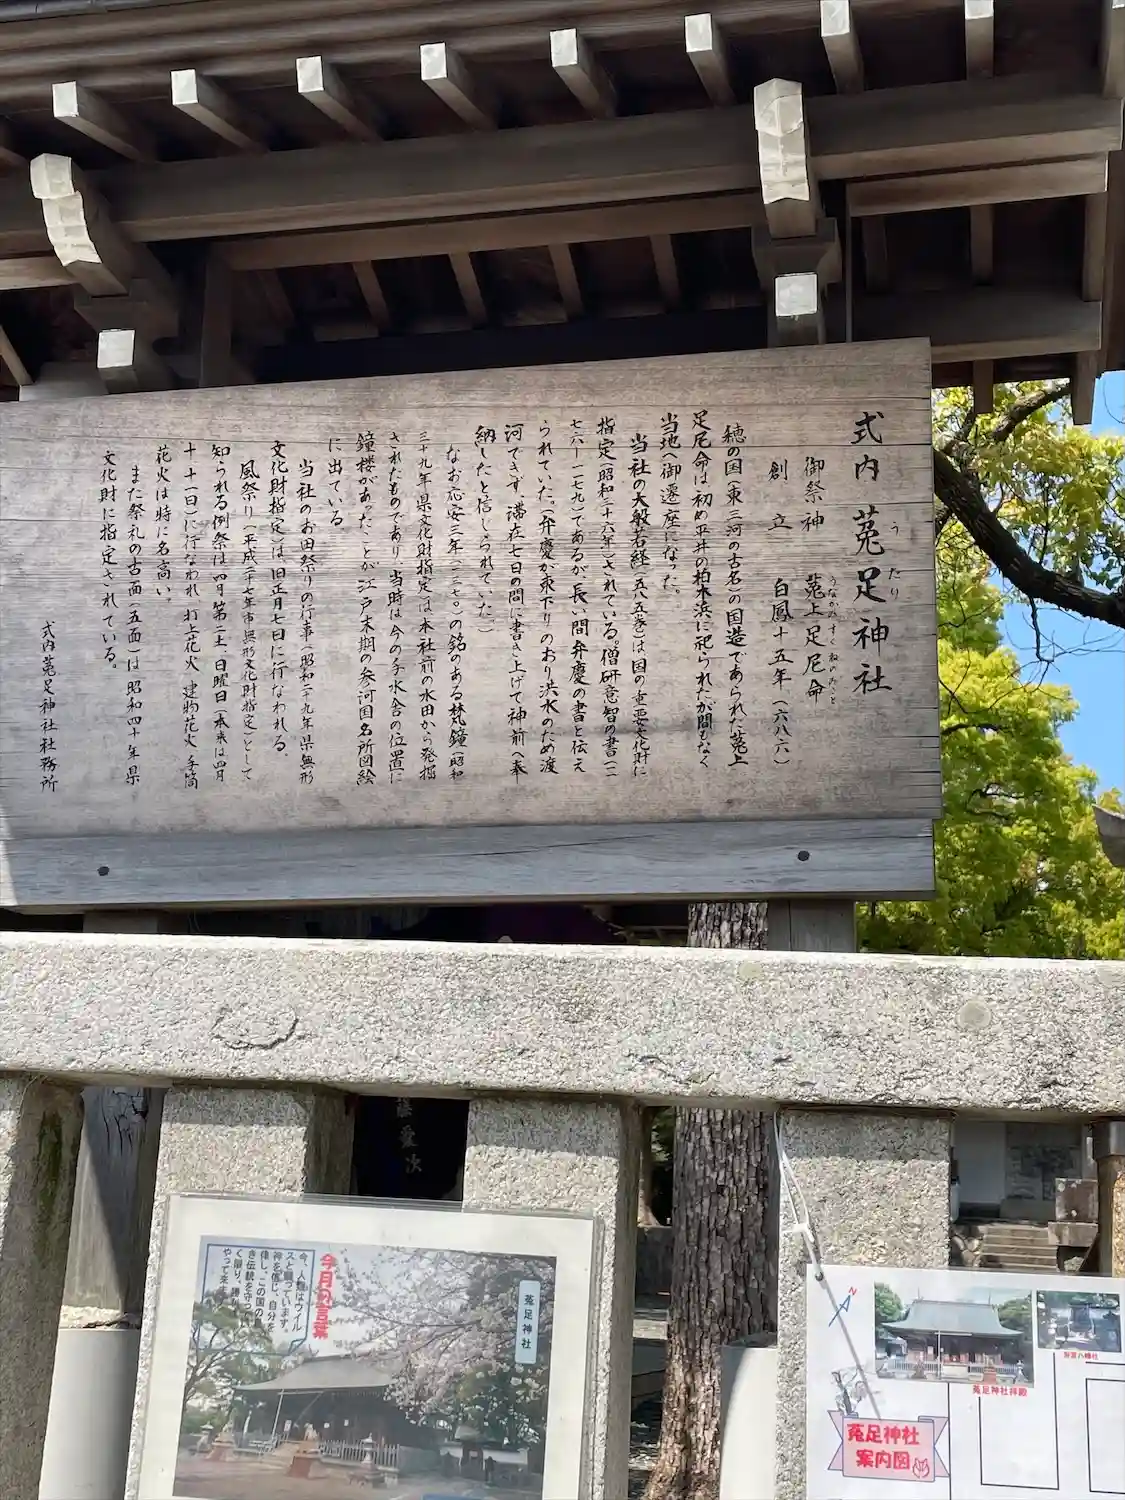 式内 菟足神社
うたり
御祭神 菟上足尼命
うなかみすくねのみこと
創立 白鳳十五年(六八六)
穂の国(東三河の古名)の国造であられた菟上
足尼命は初め平井の柏木浜に祀られたが間もなく
当地へ御遷座になった。
当社の大般若経(五八五巻)は国の重要文化財に
指定(昭和三十六年)されている。僧研意智の書(一一
七六-一一七九)であるが、長い間弁慶の書と伝え
られていた。(弁慶が東下りのおり洪水のため渡
河できず、滞在七日の間に書き上げて神前へ奉
納したと信じられていた。)
なお応安三年(一三七〇)の銘のある梵鐘(昭和
三十九年県文化財指定)は本社前の水田から発掘
されたものであり、当時は今の手水舎の位置に
鐘楼があったことが江戸末期の参河国名所図絵
に出ている
当社のお田祭りの行事(昭和二十九年県無形
文化財指定)は旧正月七日に行なわれる。
風祭り(平成二十七年市無形文化財指定)として
知られる例祭は四月第二土、日曜日(本来は四月
十十一日)に行なわれ、打上花火、建物花火、手筒
花火は特に名高い。
また祭礼の古面(五面)は昭和四十年県
文化財に指定されている。
式内菟足神社社務所
藤愛次
菟足神社
今月の言葉
今、人類はウイル
スと闘っています。
神を信じ、自分を
信じ、この国の良
き伝統を守って
やって来
N
菟足神社拝殿
菟足神社
案内図